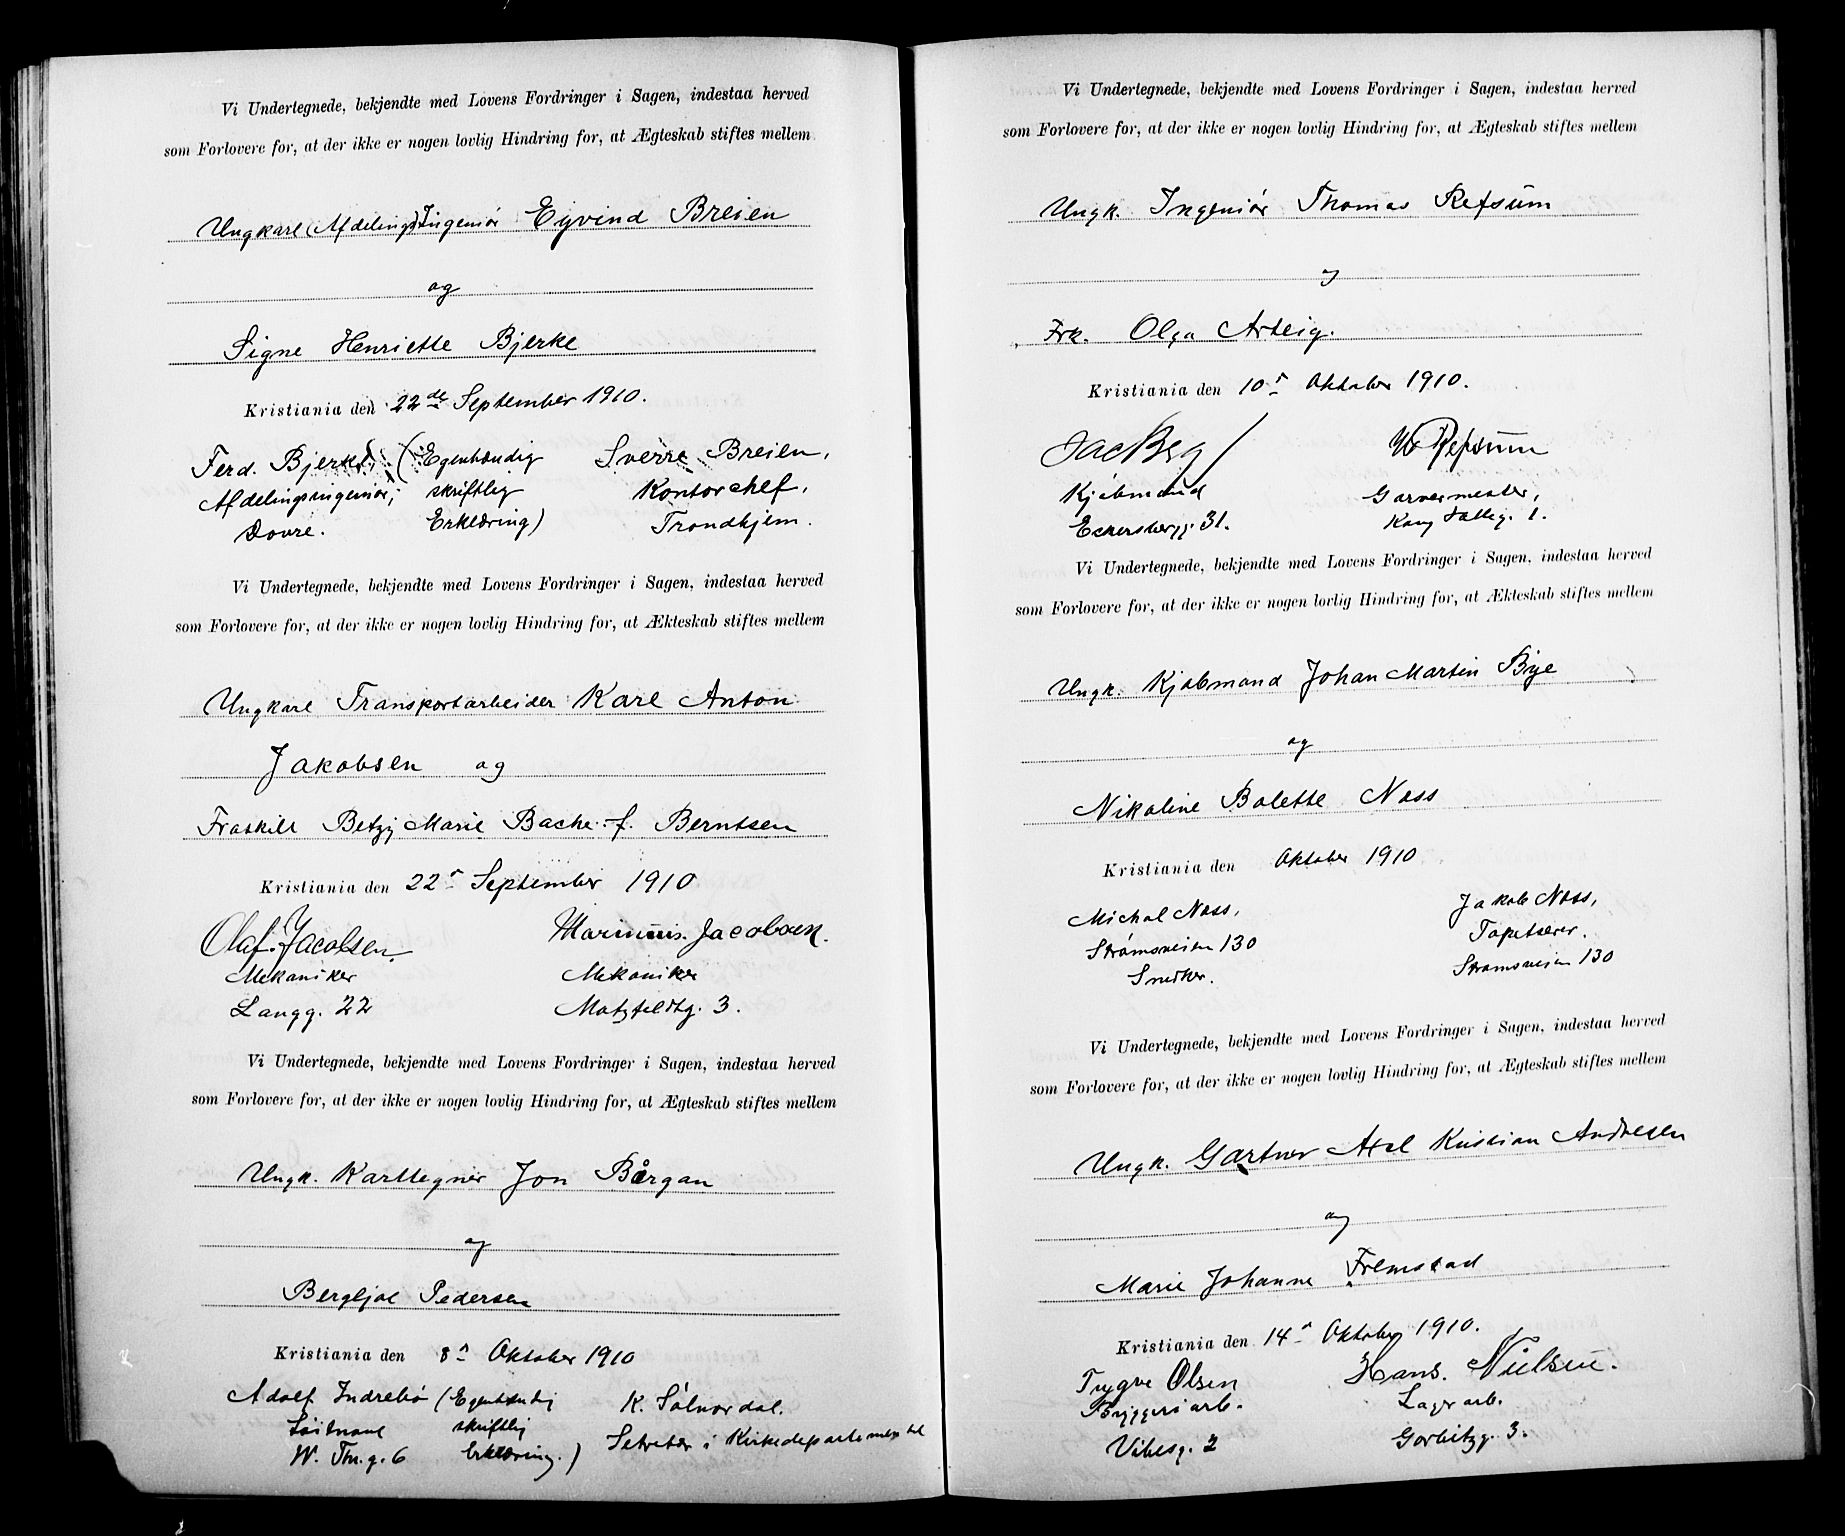 Vi Undertegnede, bekjendte med Lovens Fordringer i Sagen, indestaa herved
som Forlovere for, at der ikke er nogen lovlig Hindring for, at Ægteskab stiftes mellem
Ungkarl (Afdelings)Ingeniør Eyvind Breien
og
Signe Henriette Bjerke
Kristiania den 22de September 1910.
Ferd. Bjerke, (Egenhændig Sverre Breien,
Afdelingsingeniør, skriftlig Kontorchef,
Dovre. Erklæring) Trondhjem.
Vi Undertegnede, bekjendte med Lovens Fordringer i Sagen, indestaa herved
som Forlovere for, at der ikke er nogen lovlig Hindring for, at Ækteskab stiftes mellem
Ungkarl Transportarbeider Karl Anton
Jakobsen og
Fraskilt Betzy Marie Bache f. Berntsen
Kristiania den 22n September 1910
Olaf Jacobsen Marinius Jacobsen.
Mekaniker Mekaniker
Langg. 22 Motzfeldtg. 3.
Vi Undertegnede, bekjendte med Lovens Fordringer i Sagen, indestaa herved
som Forlovere for, at der ikke er nogen lovlig Hindring for, at Ægteskab stiftes mellem
Ungk. Karttegner Jon Børgan
og
Bergljot Pedersen
Kristiania den 8n Oktober 1910
Adolf Indrebø (Egenhændig K. Sølnordal.
Løitnant skriftlig Sekretær i Kirkedepartementet
W. Thr.g. 6 Erklæring.)
Vi Undertegnede, bekjendte med Lovens Fordringer i Sagen, indestaa herved
som Forlovere for, at der ikke er nogen lovlig Hindring for, at Ægteskab stiftes mellem
Ungk. Ingeniør Thomas Refsum
og
Frk. Olga Arteig.
Kristiania den 10n Oktober 1910.
Jac Berg Refsum
Kjøbmand Garvermester,
Eckersbergg. 31. 1.
Vi Undertegnede, bekjendte med Lovens Fordringer i Sagen, indestaa herved
som Forlovere for, at der ikke er nogen lovlig Hindring for, at Ækteskab stiftes mellem
Ungk. Kjøbmand Johan Martin Bye
og
Nikoline Bolette Noss
Kristiania den Oktober 1910
Michal Noss, Jakob Noss,
Strømsveien 130 Tapetserer.
Snedker. Strømsveien 130
Vi Undertegnede, bekjendte med Lovens Fordringer i Sagen, indestaa herved
som Forlovere for, at der ikke er nogen lovlig Hindring for, at Ægteskab stiftes mellem
Ungk. Gartner Axel Kristian Andresen
og
Marie Johanne Fremstad
Kristiania den 14n Oktober 1910.
Trygve Olsen Hans. Nielsen.
Bryggeriarb. Lagerarb.
Vibesg. 2 Gorbitzg. 3.